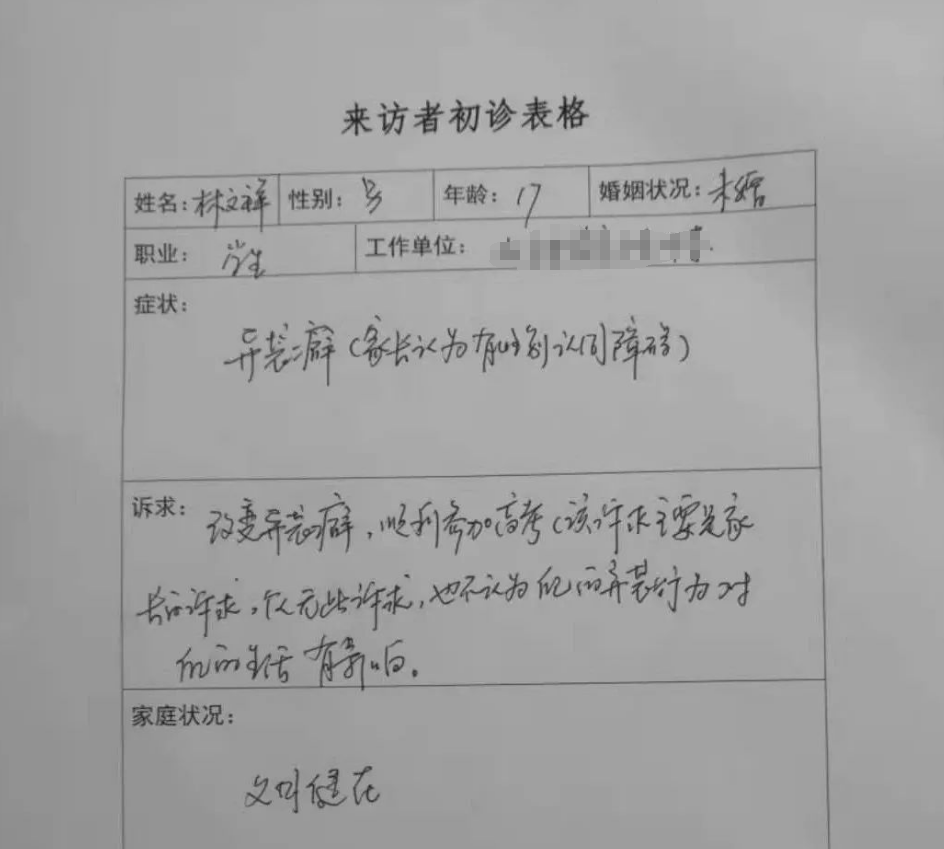 来访者初诊表格
姓名：林文祥 性别：男 年龄：17 婚姻状况：未婚
职业：学生 工作单位：
症状：
异装癖（家长认为有性别认同障碍）
诉求：改变异装癖，顺利参加高考（该诉求主要是家
长的诉求，个人无此诉求，也不认为他的异装行为对
他的生活有影响。
家庭状况：
父母健在